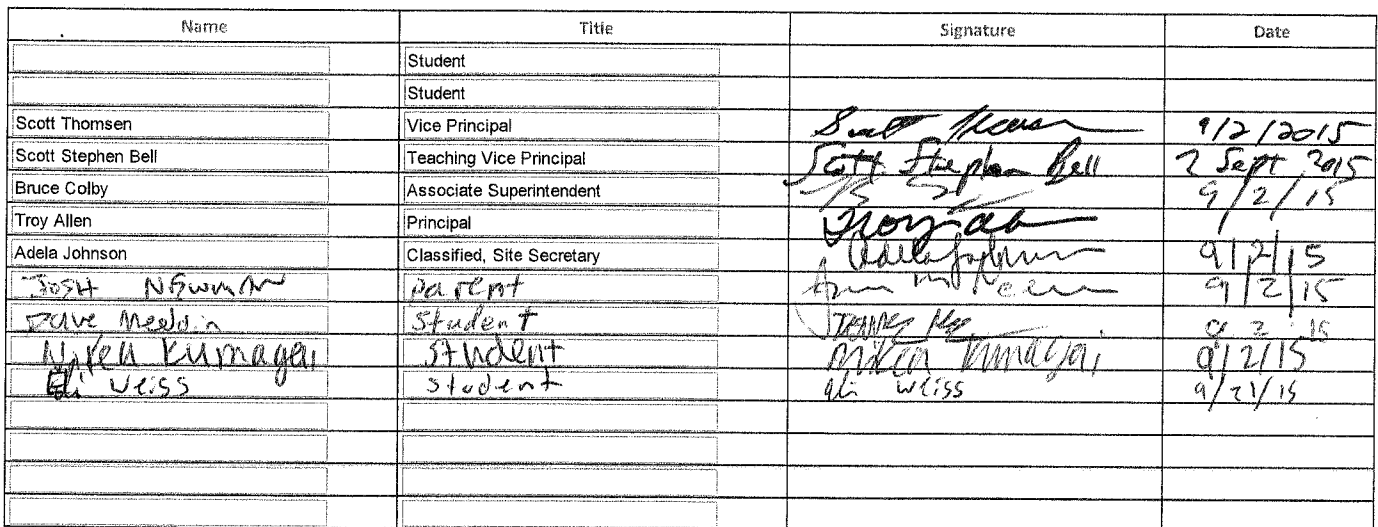 Name Title Signature Date
Student
Student
Scott Thomsen Vice Principal 9/2/2015
Scott Stephen Bell Teaching Vice Principal Scott Stephen Bell 2 Sept 2015
Bruce Colby Associate Superintendent 9/2/15
Troy Allen Principal
Adela Johnson Classified, Site Secretary Adela Johnson 9/2/15
JOSH NEWMAN parent 9/2/15
student 9 2 15
Kumagai student Kumagai 9/2/15
Eli Weiss student Eli Weiss 9/21/15